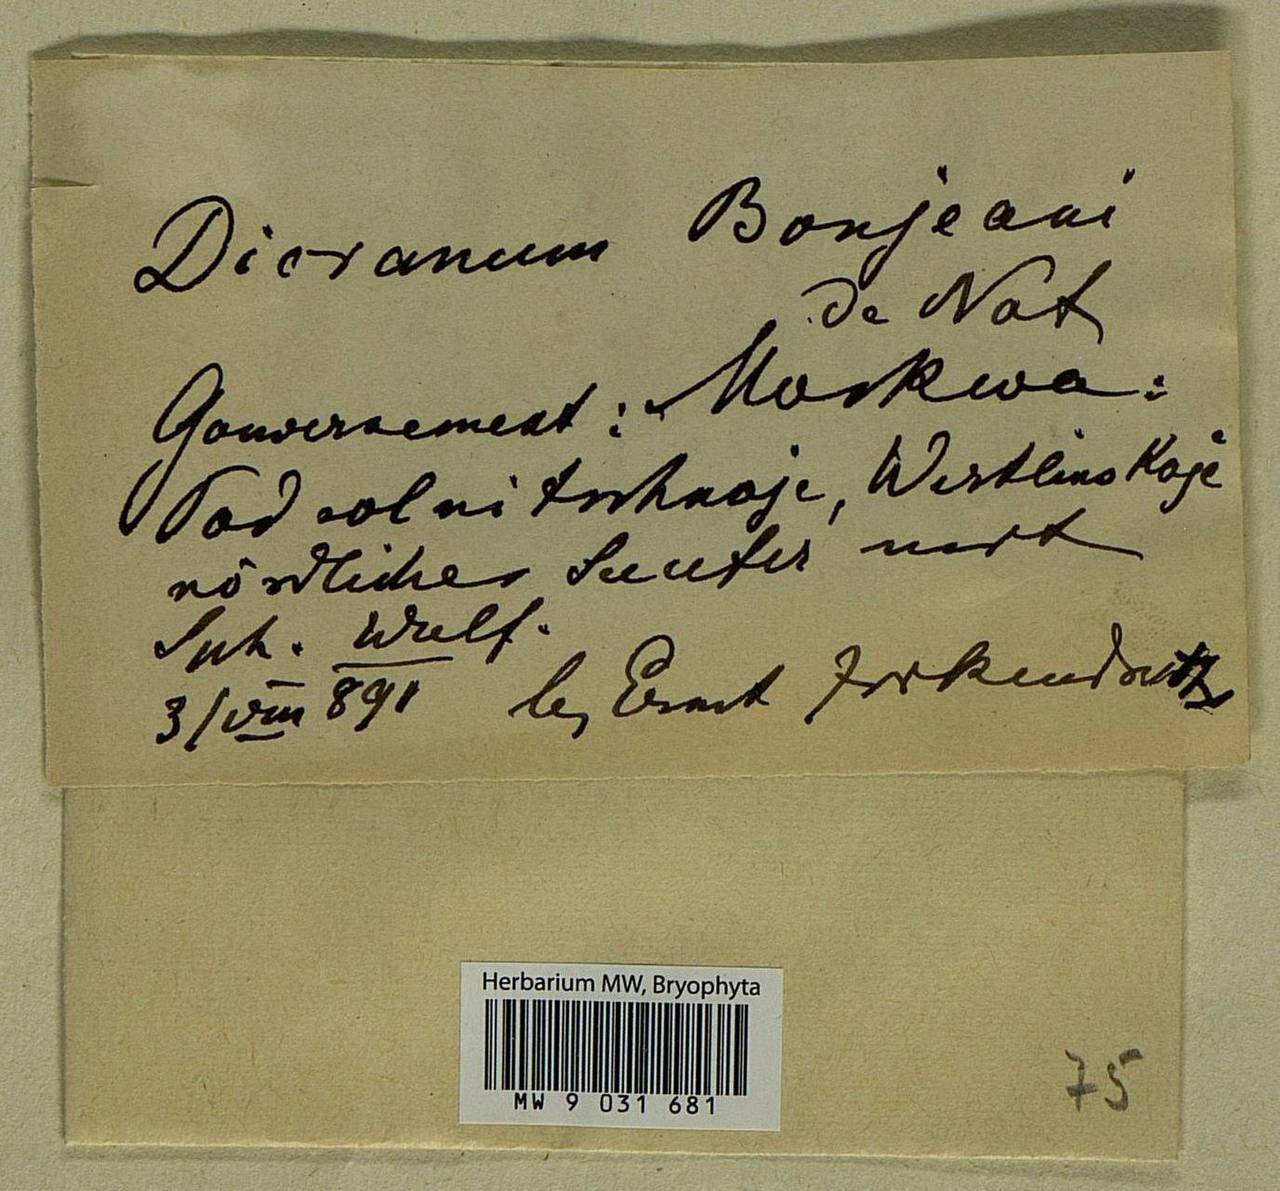 Dicranum Bonjeani
De Not
Gouvernement: Moskwa:
Podsolnitschnaje,
nördlicher
Sph. Wulf.
3/VIII 891 leg Ernst Zickendratz
Herbarium MW, Bryophyta
MW 9 031 681
75